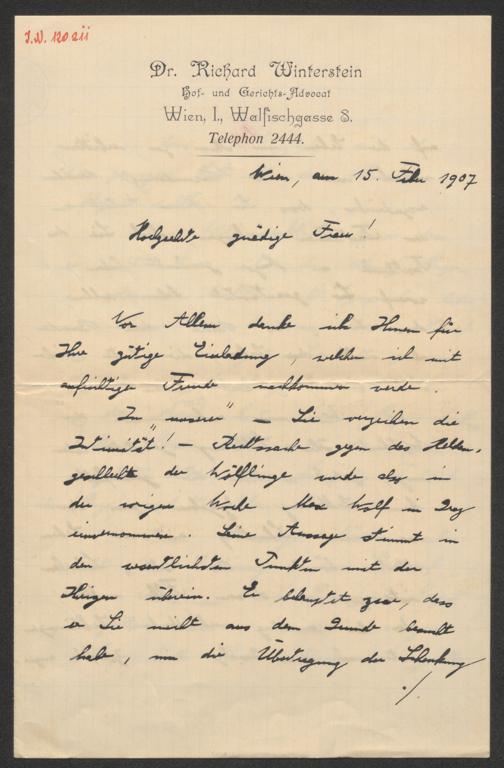 I.N. 120211
Dr. Richard Winterstein
Hof- und Gerichts-Advocat
Wien, I., Walfischgasse 8.
Telephon 2444.
Wien, am 15. Febr 1907
Hochgeehrte gnädige Frau!
Vor Allem danke ich Ihnen für
Ihre gütige Einladung welcher ich mit
aufrichtiger Freude nachkommen werde.
In "unserer" – Sie verzeihen die
Intimität! – Rechtssache gegen das Helden-
geschlecht der Wölflinge wurde also in
der vorigen Woche Max Wolf in Graz
einvernommen. Seine Aussage stimmt in
den wesentlichsten Punkten mit der
Ihrigen überein. Er behauptet zwar, dass
er Sie nicht aus dem Grunde besucht
habe, um die Übertragung der Schenkung
./.